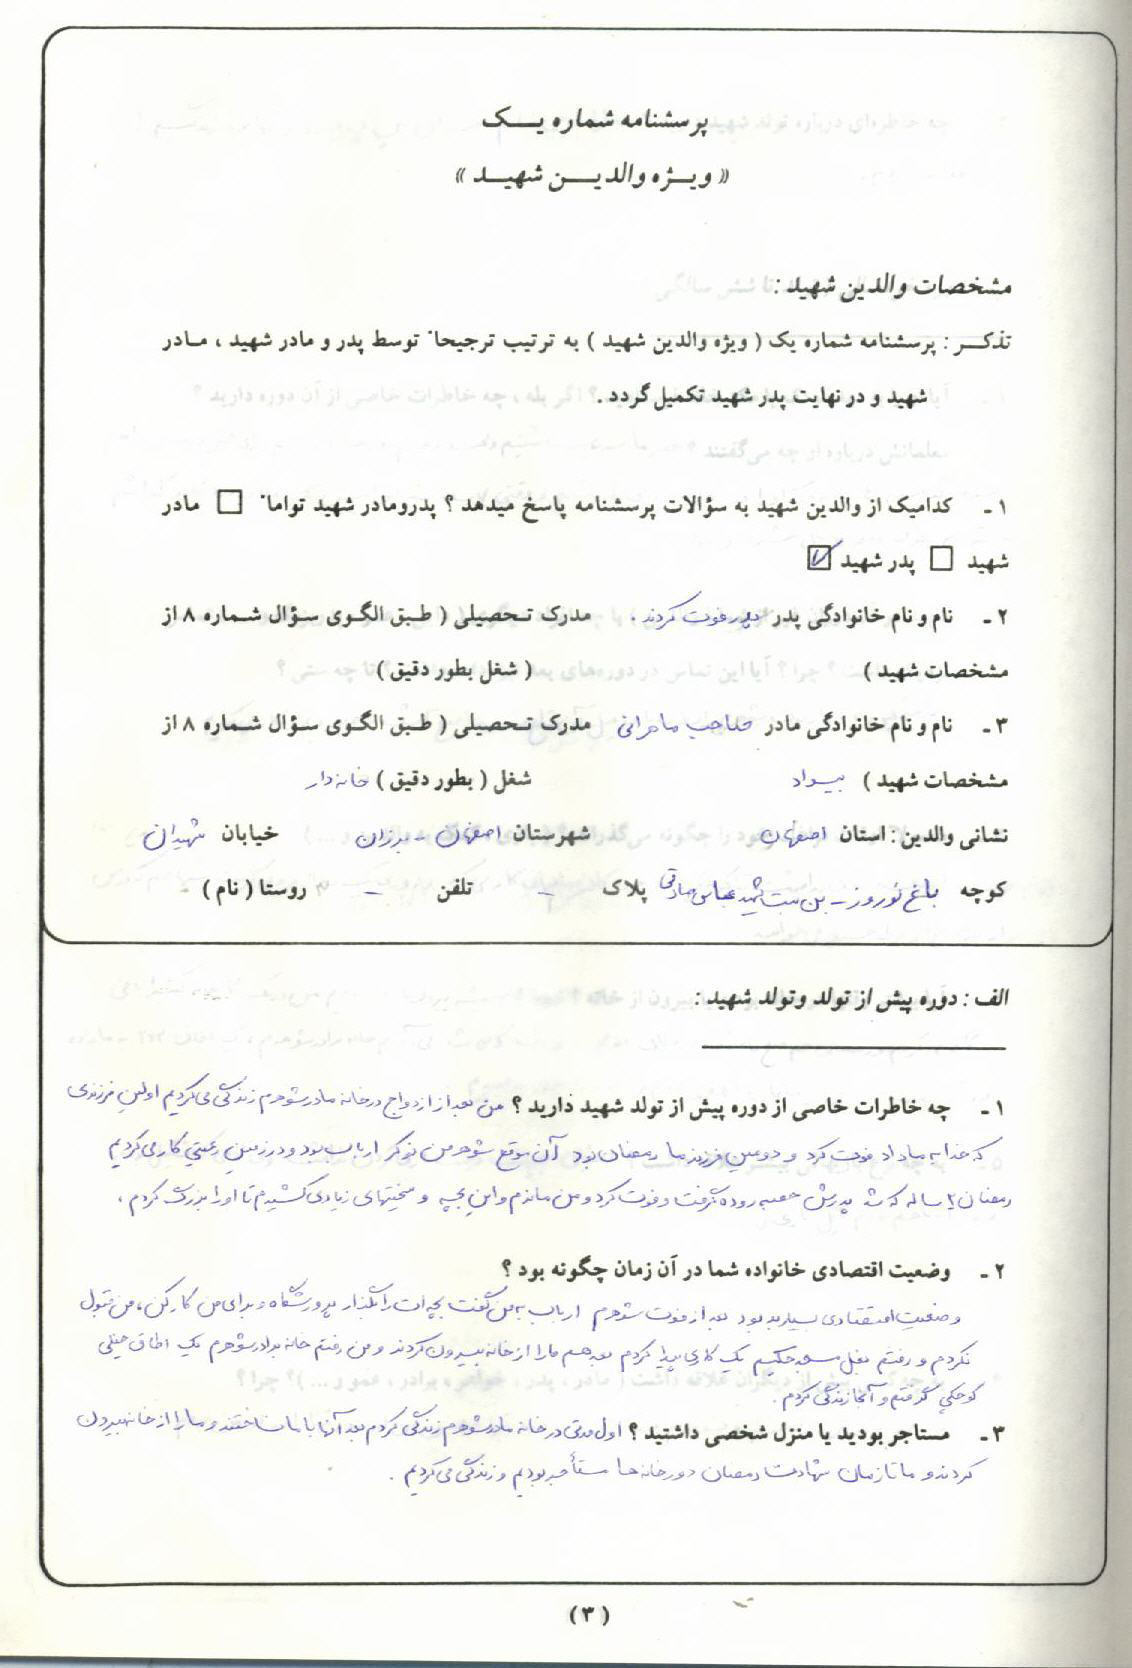 پرسشنامه شماره یک
« ویژه والدین شهید »
مشخصات والدین شهید :
تذکر : پرسشنامه شماره یک ( ویژه والدین شهید ) به ترتیب ترجیحاً توسط پدر و مادر شهید ، مادر
شهید و در نهایت پدر شهید تکمیل گردد .
۱ - کدامیک از والدین شهید به سؤالات پرسشنامه پاسخ میدهد ؟ پدرومادر شهید تواماً □ مادر
شهید □ پدر شهید ☑
۲ - نام و نام خانوادگی پدر پدر فوت کردند . مدرک تحصیلی ( طبق الگوی سؤال شماره ۸ از
مشخصات شهید ) ( شغل بطور دقیق )
۳ - نام و نام خانوادگی مادر صاحب مدرک تحصیلی ( طبق الگوی سؤال شماره ۸ از
مشخصات شهید ) بیسواد شغل ( بطور دقیق ) خانه‌دار
نشانی والدین : استان اصفهان شهرستان اصفهان - برزان خیابان شهیدان
کوچه باغ نوروز - بن بست شهید عباس صادقی پلاک - تلفن - روستا ( نام )
الف : دوره پیش از تولد وتولد شهید :
۱ - چه خاطرات خاصی از دوره پیش از تولد شهید دارید ؟ من بعد از ازدواج در خانه مادرشوهرم زندگی می‌کردیم اولین فرزندی
که خدا به ما داد فوت کرد و دومین فرزند ما رمضان بود آن موقع شوهر من نوکر ارباب بود و در زمین رعیتی کار می‌کردیم
رمضان ساله که شد پدرش روده گرفت و فوت کرد و من ماندم و این بچه و سختیهای زیادی کشیدم تا او را بزرگ کردم ،
۲ - وضعیت اقتصادی خانواده شما در آن زمان چگونه بود ؟
وضعیت اقتصادی بسیار بد بود بعد از فوت شوهرم ارباب به من گفت بچه‌ات را بگذار پرورشگاه و برای من کار کن ، من قبول
نکردم و رفتم بغل مسجد حکیم یک کاری پیدا کردم بعد هم ما را از خانه بیرون کردند و من رفتم خانه برادرشوهرم یک اطاق خیلی
کوچکی گرفتم و آنجا زندگی کردم .
۳ - مستاجر بودید یا منزل شخصی داشتید ؟ اول مدتی در خانه مادرشوهرم زندگی کردم بعد آنها با ما نساختند و ما را از خانه بیرون
کردند و ما تا زمان شهادت رمضان در خانه‌ها مستأجر بودیم و زندگی می‌کردیم .
( ۳ )